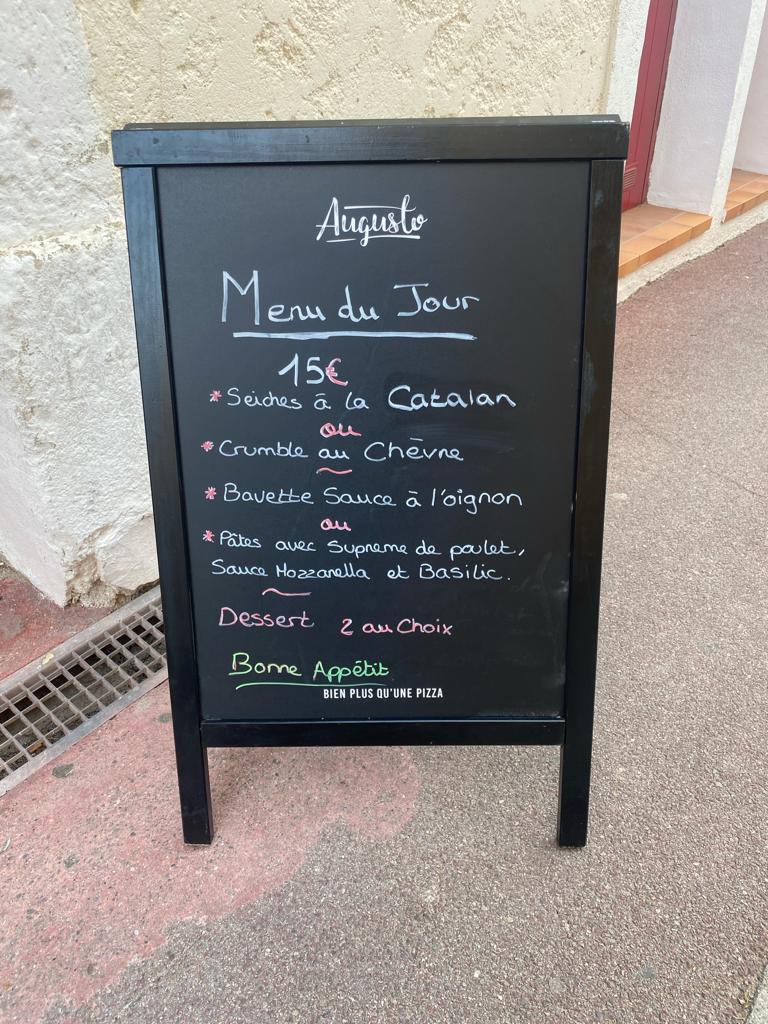 Augusto
Menu du Jour
15€
* Seiches à la Catalan
ou
* Crumble au Chèvre
~
* Bavette Sauce à l'oignon
ou
* Pâtes avec Supreme de poulet,
Sauce Mozzarella et Basilic.
~
Dessert 2 au Choix
Bonne Appétit
BIEN PLUS QU'UNE PIZZA